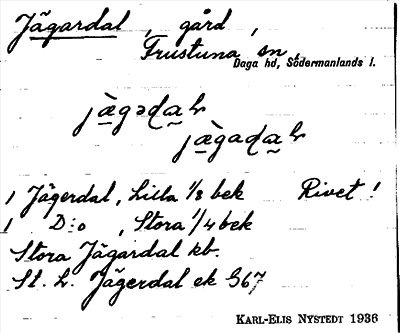 Jägardal, gård,
Frustuna sn,
Daga hd, Södermanlands l.
jæ̀gəḍaḷr
jæ̀gaḍaḷr
1 Jägerdal, Lilla 1/8 bek Rivet!
1 D:o, Stora 1/4 bek
Stora Jägardal kb.
St. L. Jägerdal ek S67
KARL-ELIS NYSTEDT 1936